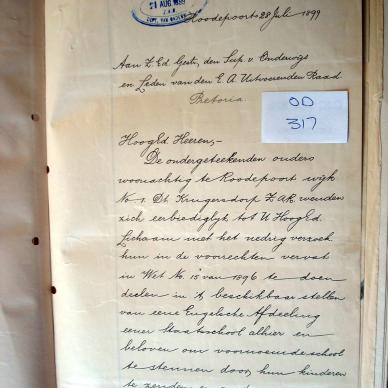 21 AUG 1899
Z.A.R.
Roodepoort 28 Juli 1899
Aan Z.Ed. Gestr. den Sup. v. Onderwijs
en Leden van den E. A. Uitvoerenden Raad
Pretoria
OD
317
HoogEd. Heeren,-
De ondergeteekenden ouders
woonachtig te Roodepoort wijk
No 1. Dt. Krugersdorp Z.A.R. wenden
zich eerbiediglyk tot U HoogEd.
Lichaam met het nedrig verzoek
hun in de voorrechten vervat
in Wet No. 15 van 1896 te doen
deelen in 't beschikbaar stellen
van eene Engelsche Afdeeling
eener Staatschool alhier en
beloven om voornoemde school
te steunen door, hun kinderen
te zenden